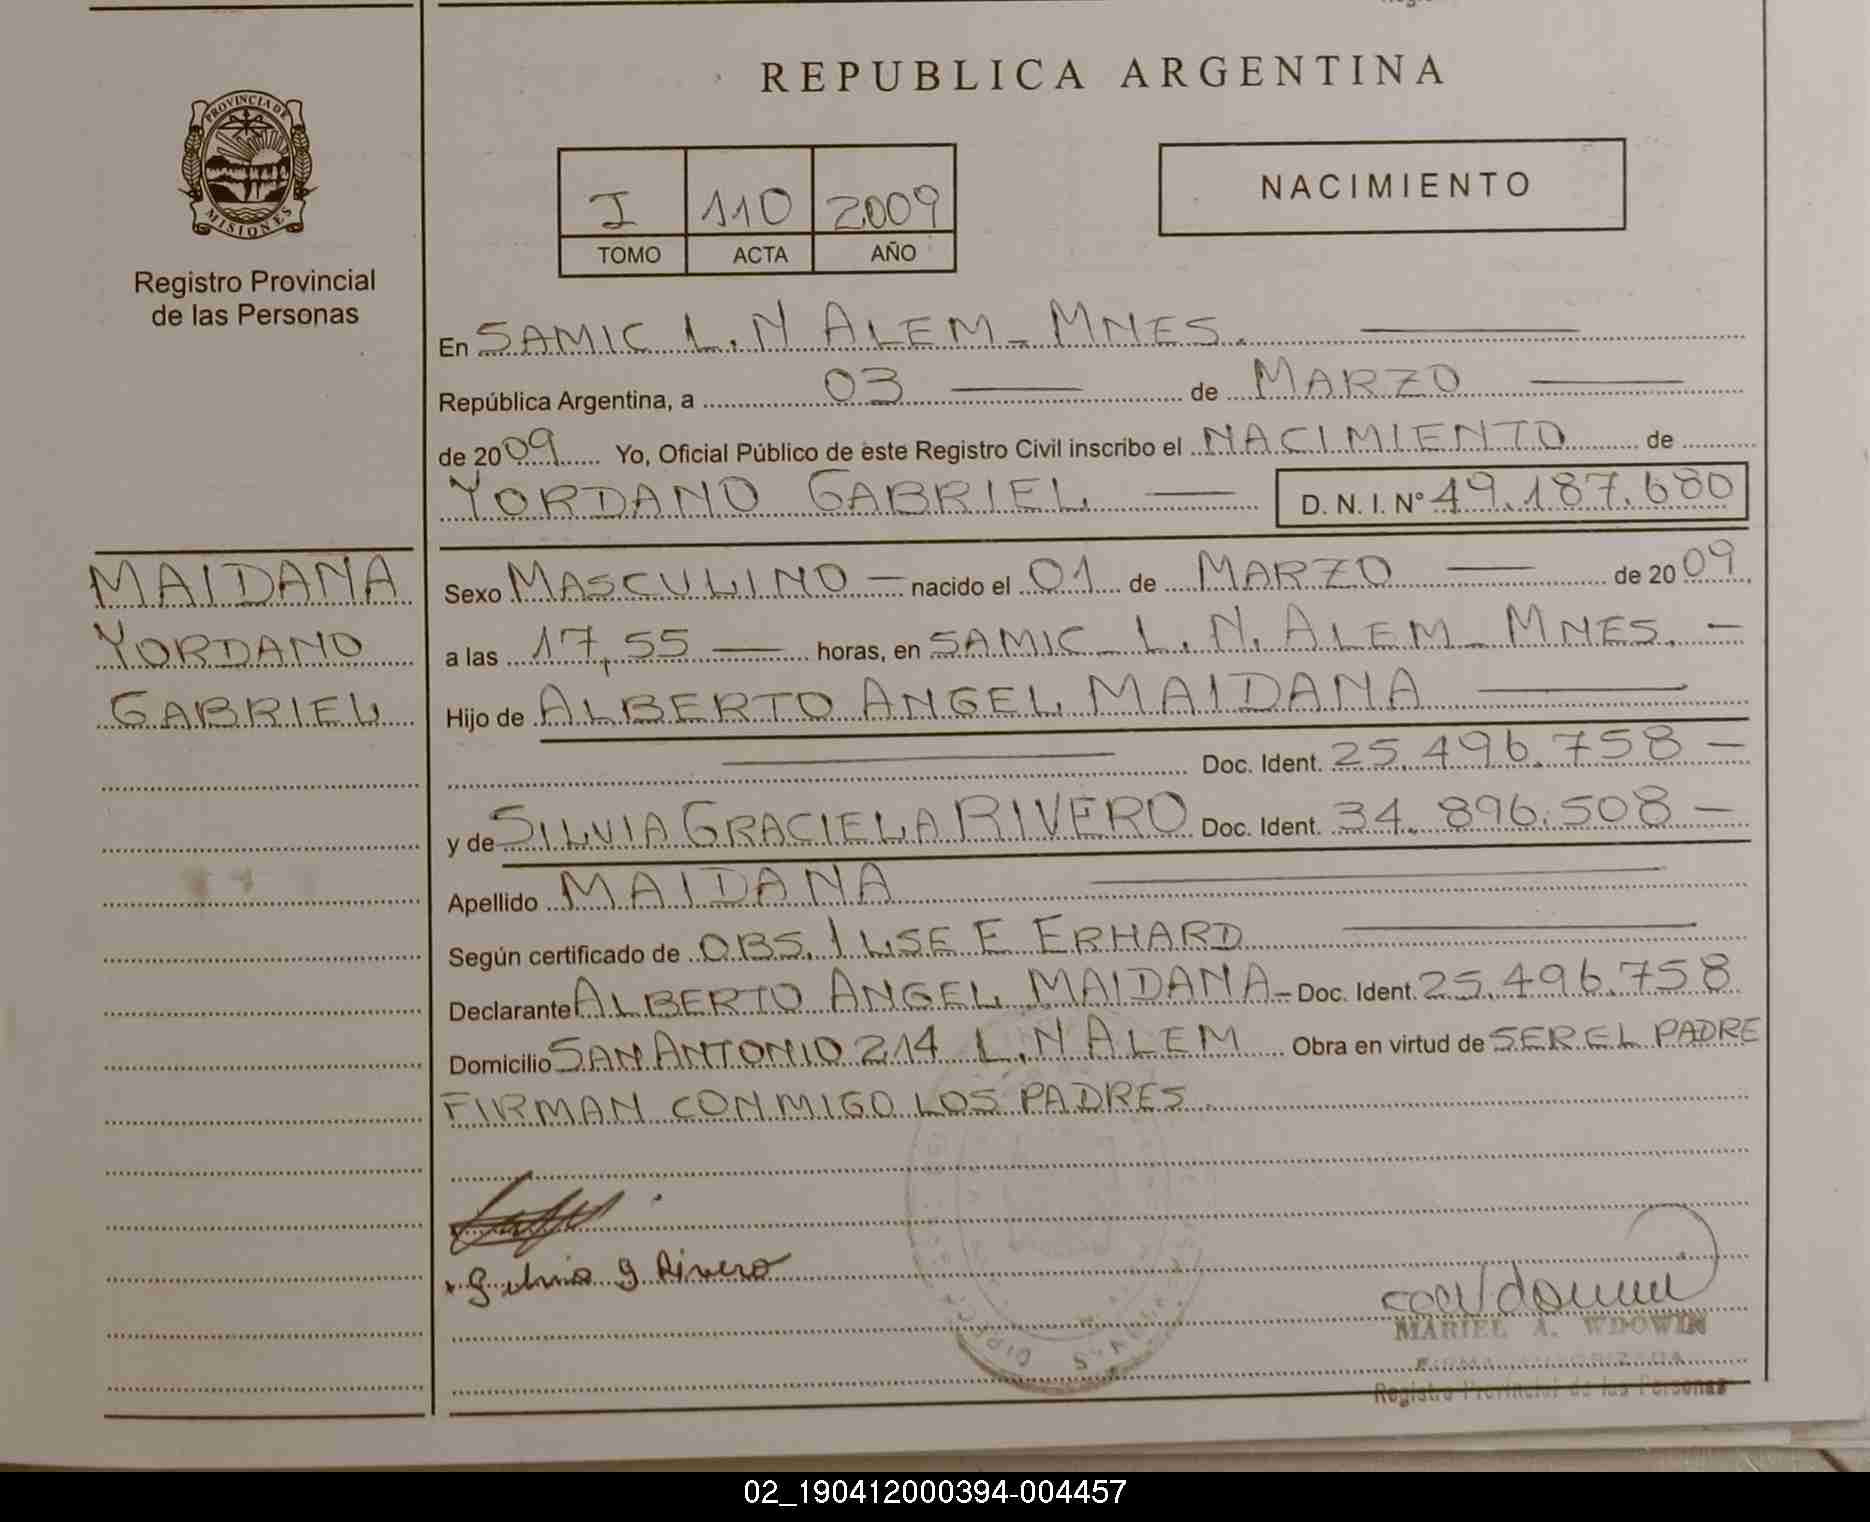 REPUBLICA ARGENTINA
PROVINCIA DE
MISIONES
Registro Provincial
de las Personas
I 110 2009
TOMO ACTA AÑO
NACIMIENTO
En SAMIC L.N ALEM - MNES.
República Argentina, a 03 de MARZO
de 2009 Yo, Oficial Público de este Registro Civil inscribo el NACIMIENTO de
YORDANO GABRIEL D. N. I. N° 49.187.680
MAIDANA
YORDANO
GABRIEL
Sexo MASCULINO nacido el 01 de MARZO de 2009
a las 17,55 horas, en SAMIC L.N. ALEM - MNES.
Hijo de ALBERTO ANGEL MAIDANA
Doc. Ident. 25.496.758
y de SILVIA GRACIELA RIVERO Doc. Ident. 34.896.508
Apellido MAIDANA
Según certificado de OBS. ILSE E ERHARD
Declarante ALBERTO ANGEL MAIDANA - Doc. Ident. 25.496.758
Domicilio SAN ANTONIO 214 L.N ALEM Obra en virtud de SER EL PADRE
FIRMAN CONMIGO LOS PADRES
Silvia g Rivero
MARIEL A. WDOWIN
FIRMA AUTORIZADA
Registro Provincial de las Personas
02_190412000394-004457